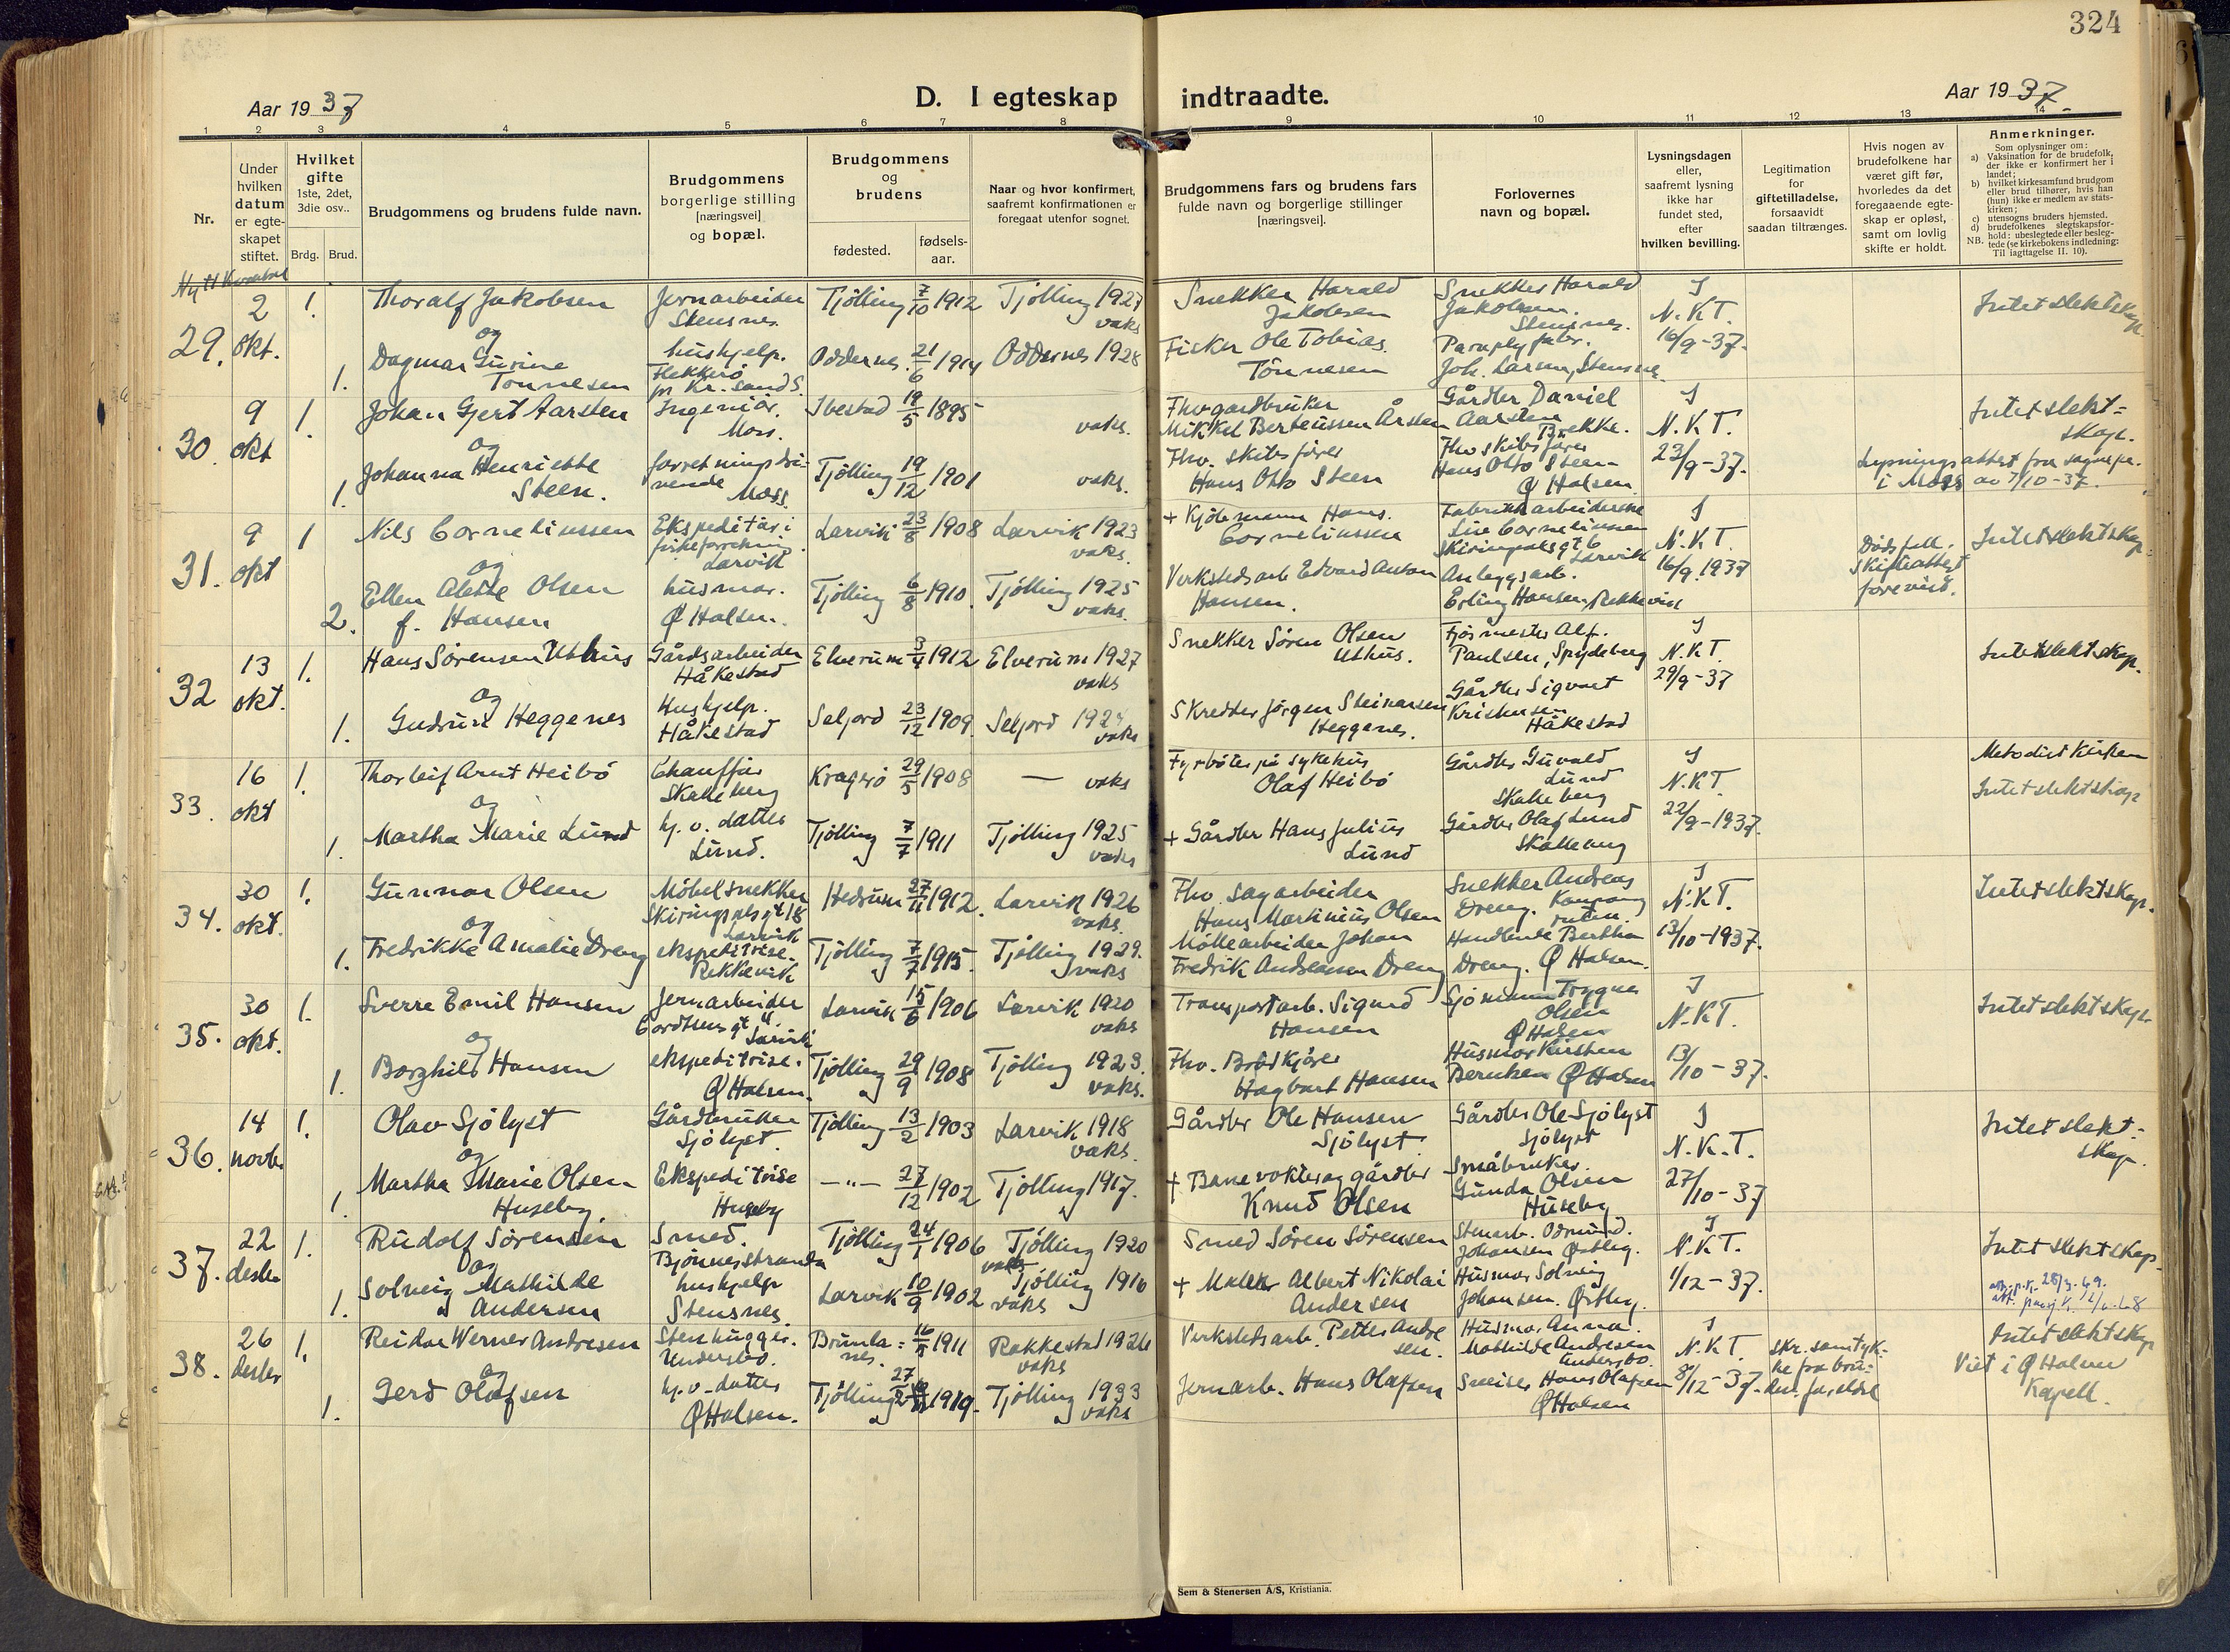 324
Aar 1937
D. I egteskap indtraadte.
Aar 1937.
1 2 3 4 5 6 7 8 9 10 11 12 13 14
Nr.
Under hvilken datum er egteskapet stiftet.
Hvilket gifte
1ste, 2det, 3die osv..
Brdg. Brud.
Brudgommens og brudens fulde navn.
Brudgommens borgerlige stilling [næringsvei] og bopæl.
Brudgommens og brudens
fødested.
fødselsaar.
Naar og hvor konfirmert, saafremt konfirmationen er foregaat utenfor sognet.
Brudgommens fars og brudens fars fulde navn og borgerlige stillinger [næringsvei].
Forlovernes navn og bopæl.
Lysningsdagen eller, saafremt lysning ikke har fundet sted, efter hvilken bevilling.
Legitimation for giftetilladelse, forsaavidt saadan tiltrænges.
Hvis nogen av brudefolkene har været gift før, hvorledes da det foregaaende egteskap er opløst, samt om lovlig skifte er holdt.
Anmerkninger.
Som oplysninger om:
a) Vaksination for de brudefolk, der ikke er konfirmert her i landet;
b) hvilket kirkesamfund brudgom eller brud tilhører, hvis han (hun) ikke er medlem av statskirken;
c) utensogns bruders hjemsted.
d) brudefolkenes slegtskapsforhold: ubeslegtede eller beslegtede (se kirkebokens indledning:
NB. Til iagttagelse II. 10).
Nytt Kvartal
29. 2 okt. 1. Thoralf Jakobsen Jernarbeider Stensnes. Tjölling 7/10 1912 Tjölling 1927 vaks Snekker Harald Jakobsen Snekker Harald Jakobsen. Stensnes. I N.K.T. 16/9-37. Intet slektskap.
og
1. Dagmar Gurine Tönnesen hushjelp. Flekkerö pr Kr.sand S. Oddernes. 21/6 1914 Oddernes 1928 Fisker Ole Tobias Tönnesen Paraplyfabr. Joh. Larsen, Stensnes.
30. 9 okt 1. Johan Gjert Aarsten Ingeniör. Moss. Ibestad 19/5 1895 vaks. Fhv gardbruker Mikkel Berteussen Årsten Gårdbr Daniel Aarsten Brekke. I N.K.T. 23/9-37. Intet slektskap.
og
1. Johanna Henriette Steen. forretningsdrivende Moss. Tjölling 19/12 1901 vaks. Fhv. skibsförer Hans Otto Steen Fhv skibsförer Hans Otto Steen Ø Halsen. Lysningsattest fra sognepr. i Moss av 7/10-37.
31. 9 okt 1 Nils Corneliussen Ekspeditör i fiskeforretning. Larvik Larvik 23/8 1908 Larvik 1923 vaks. + Kjöbmann Hans. Corneliussen Fabrikkarbeiderske Corneliussen Skiringssalsgt 6 Larvik I N.K.T. 16/9.1937 Dödsfall. Skifteattest forevist. Intet slektskap
og
2. Ellen Alette Olsen f. Hansen husmor. Ø Halsen. Tjölling 6/8 1910. Tjölling 1925 vaks. Verkstedsarb Edvard Anton Hansen. Anleggsarb. Erling Hansen, Rekkevik
32 13 okt. 1. Hans Sörensen Uthus Gårdsarbeider Håkestad Elverum 3/4 1912 Elverum 1927 vaks Snekker Sören Olsen Uthus. Fjösmester Alf. Paulsen, Spydeberg I N.K.T. 29/9-37 Intet slektskap.
og
1. Gudrun Heggenes Hushjelp. Håkestad Seljord 23/12 1909. Seljord vaks Skredder Jörgen Steinarsen Heggenes. Gårdbr Sigvart Kristensen Håkestad
33. 16 okt 1. Thorleif Arnt Heibö Chaufför Skalleberg Kragerö 29/5 1908 — vaks Fyrböter på sykehus Olaf Heibö Gårdbr Guvald Lund Skalleberg I N.K.T. 22/9-1937. Metodist Kirken Intet slektskap
og
1. Martha Marie Lund hj. v. datter Lund. Tjölling 7/7 1911 Tjölling 1925 vaks + Gårdbr Hans Julius Lund Gårdbr Olaf Lund Skalleberg
34. 30 okt. 1. Gunnar Olsen Möbelsnekker Skiringsalsgt 18 Larvik Hedrum 27/11 1912. Larvik 1926 vaks. Fhv. Sagarbeider Hans Martinius Olsen Snekker Andreas Dreng. I N.K.T. 13/10-1937. Intet slektskap.
og
1. Fredrikke Amalie Dreng ekspeditrise. Rekkevik Tjölling 7/7 1915. Tjölling 1929. vaks Möllearbeider Johan Fredrik Andreassen Dreng Handlende Bertha Dreng. Ø Halsen.
35. 30 okt. 1. Sverre Emil Hansen Jernarbeider Larvik Larvik 15/6 1906 Larvik 1920 vaks Transportarb. Sigurd Hansen Sjömann Trygve Olsen Ø Halsen I N.K.T. 13/10-37. Intet slektskap.
og
1. Borghild Hansen ekspeditrise. Ø Halsen. Tjölling 29/9 1908 Tjölling 1923. vaks. Fhv. Brödkjörer Hagbart Hansen Husmor Kirsten Berntsen Ø Halsen
36. 14 novbr 1. Olav Sjölyst Gårdbruker Sjölyst. Tjölling 13/2 1903 Larvik 1918 vaks. Gårdbr Ole Hansen Sjölyst. Gårdbr Ole Sjölyst Sjölyst I N.K.T. 27/10-37 Intet slektskap.
og
1. Martha Marie Olsen Huseby. Ekspeditrise Huseby —"— 27/12 1902 Tjölling 1917. + Banevokter og gårdbr Knud Olsen Småbruker. Gunda Olsen Huseby
37. 22 desbr 1. Rudolf Sörensen Smed. Bjönnesstranda Tjölling 24/1 1906 Tjölling 1920 vaks Smed Sören Sörensen Stenarb. Odmund. Johansen Østby. I N.K.T. 1/12-37. Intet slektskap
og
1. Solveig Mathilde Andersen hushjelp Stensnes. Larvik 10/9 1902 Tjölling 1916 vaks + Maler Albert Nikolai Andersen Husmor Solveig Johansen. Østby.
38. 26 desbr 1. Reidar Werner Andresen Stenhugger. Undersbo. Brunlanes. 1911 Rakkestad 1926 vaks Verkstedsarb. Petter Andresen. Husmor Anna. Mathilde Andresen Undersbo. I N.K.T. 8/12-37. Skr. samtykke fra brudens foreldre Intet slektskap Viet i Ø Halsen Kapell.
og
1. Gerd Olafsen hj. v. datter Ø Halsen. Tjölling 27/2 1919. Tjölling 1933 vaks Jernarb. Hans Olafsen Sveiser Hans Olafsen Ø Halsen
Sem & Stenersen A/S, Kristiania.